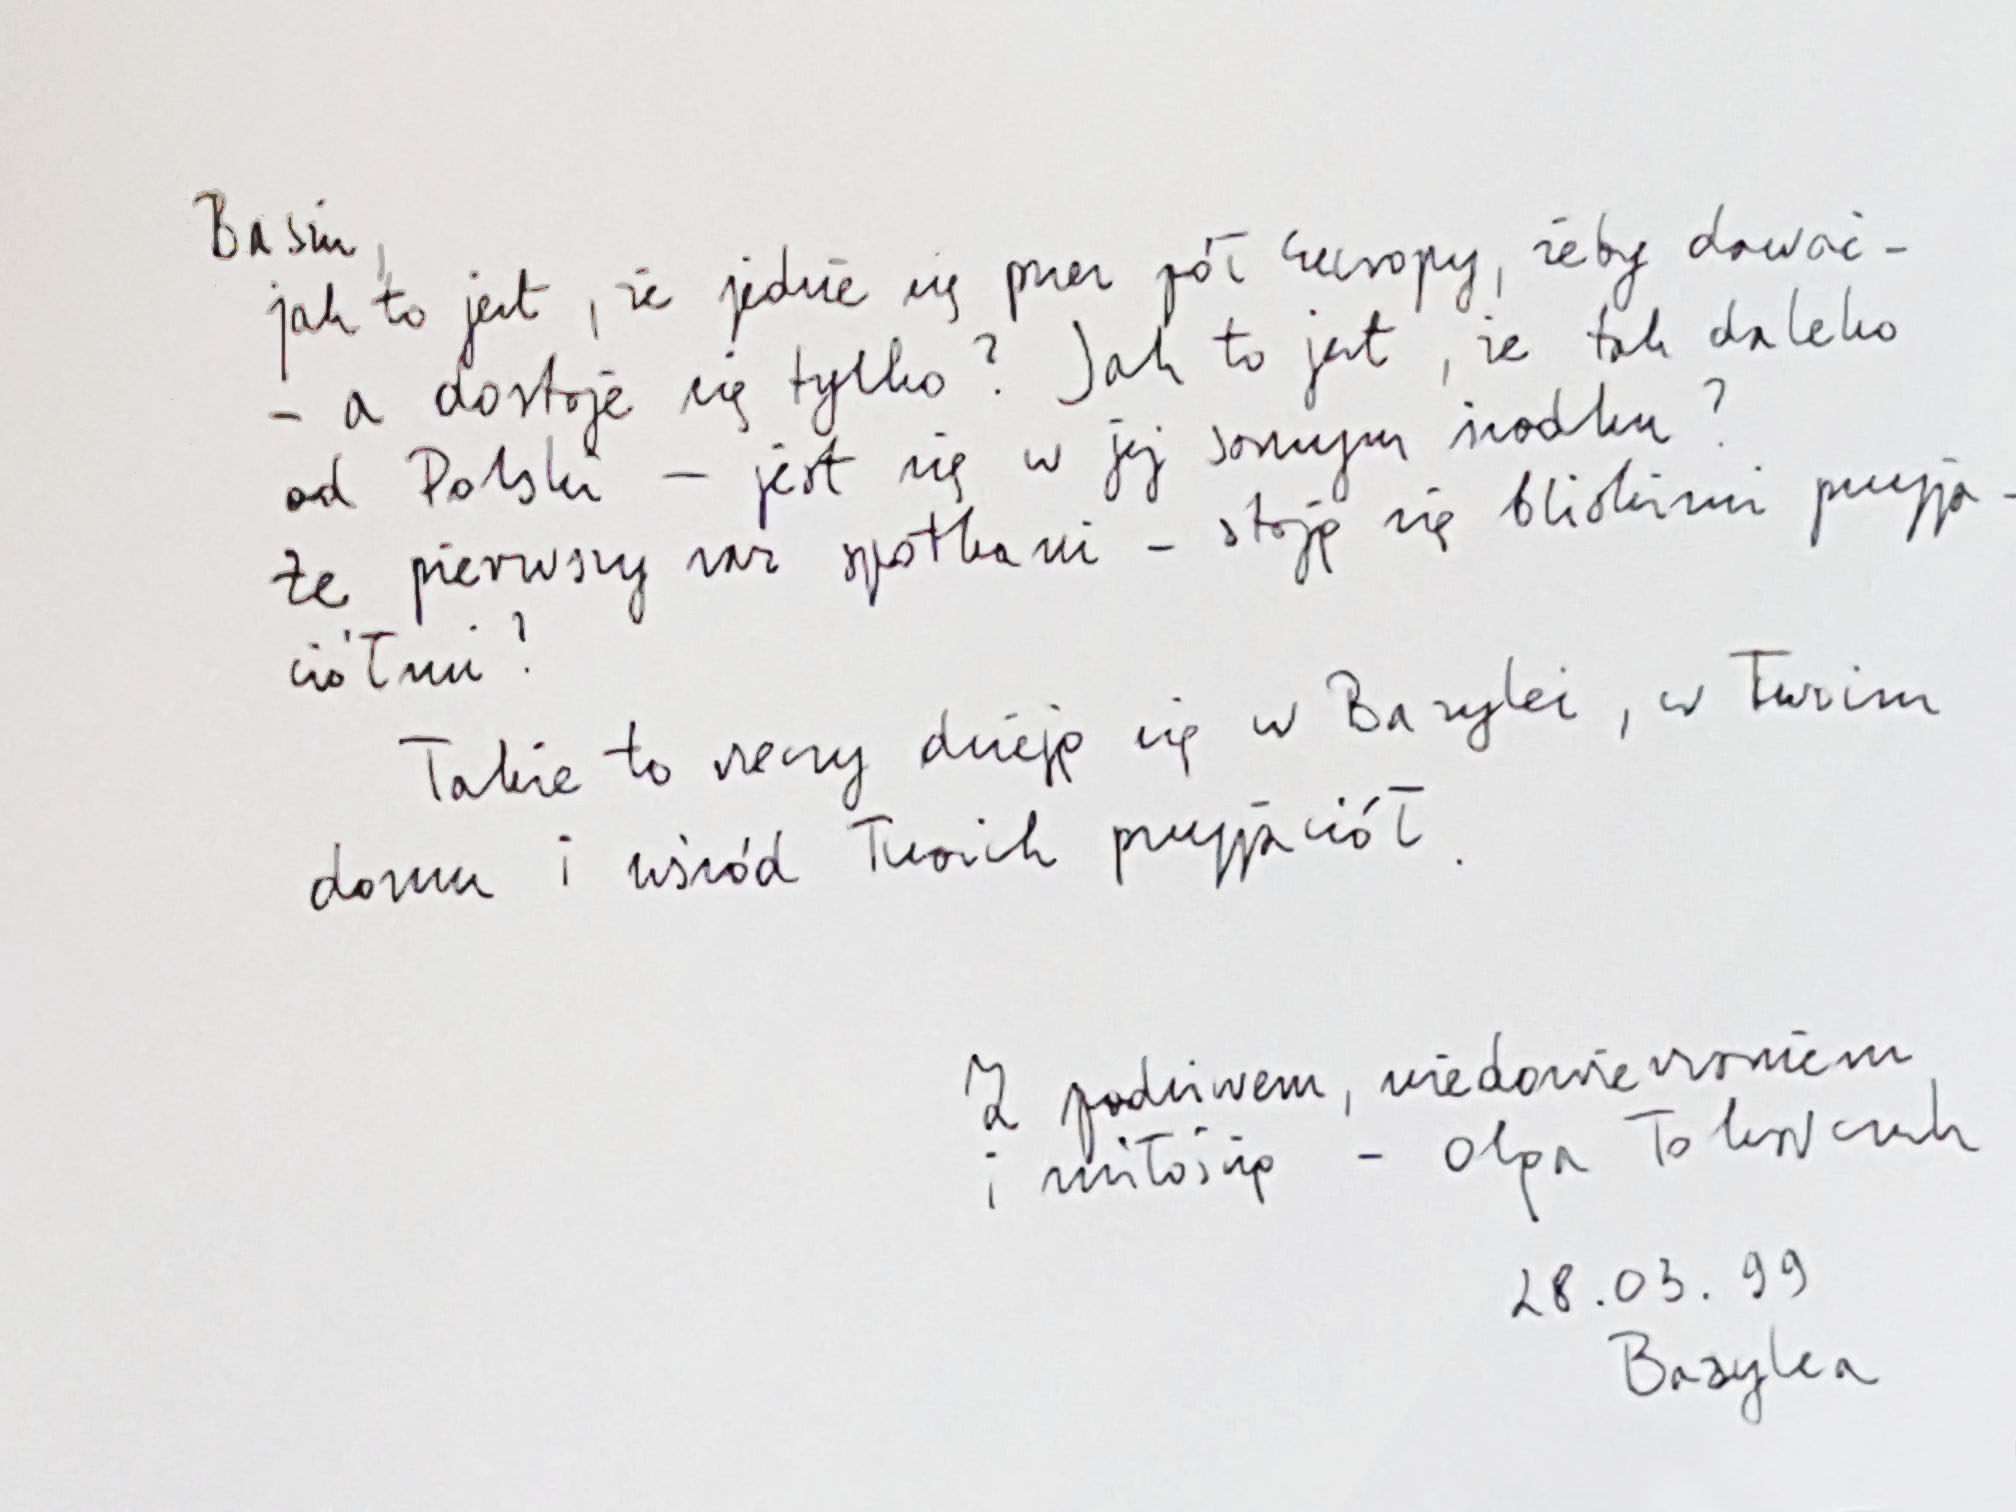 Basiu,
jak to jest, że jedzie się przez pół Europy, żeby dawać -
- a dostaje się tylko? Jak to jest, że tak daleko
od Polski - jest się w jej samym środku?
Że pierwszy raz spotkani - stają się bliskimi przyja-
ciółmi?
Takie to rzeczy dzieją się w Bazylei, w Twoim
domu i wśród Twoich przyjaciół.
Z podziwem, niedowierzaniem
i miłością - Olga Tokarczuk
28.03.99
Bazylea